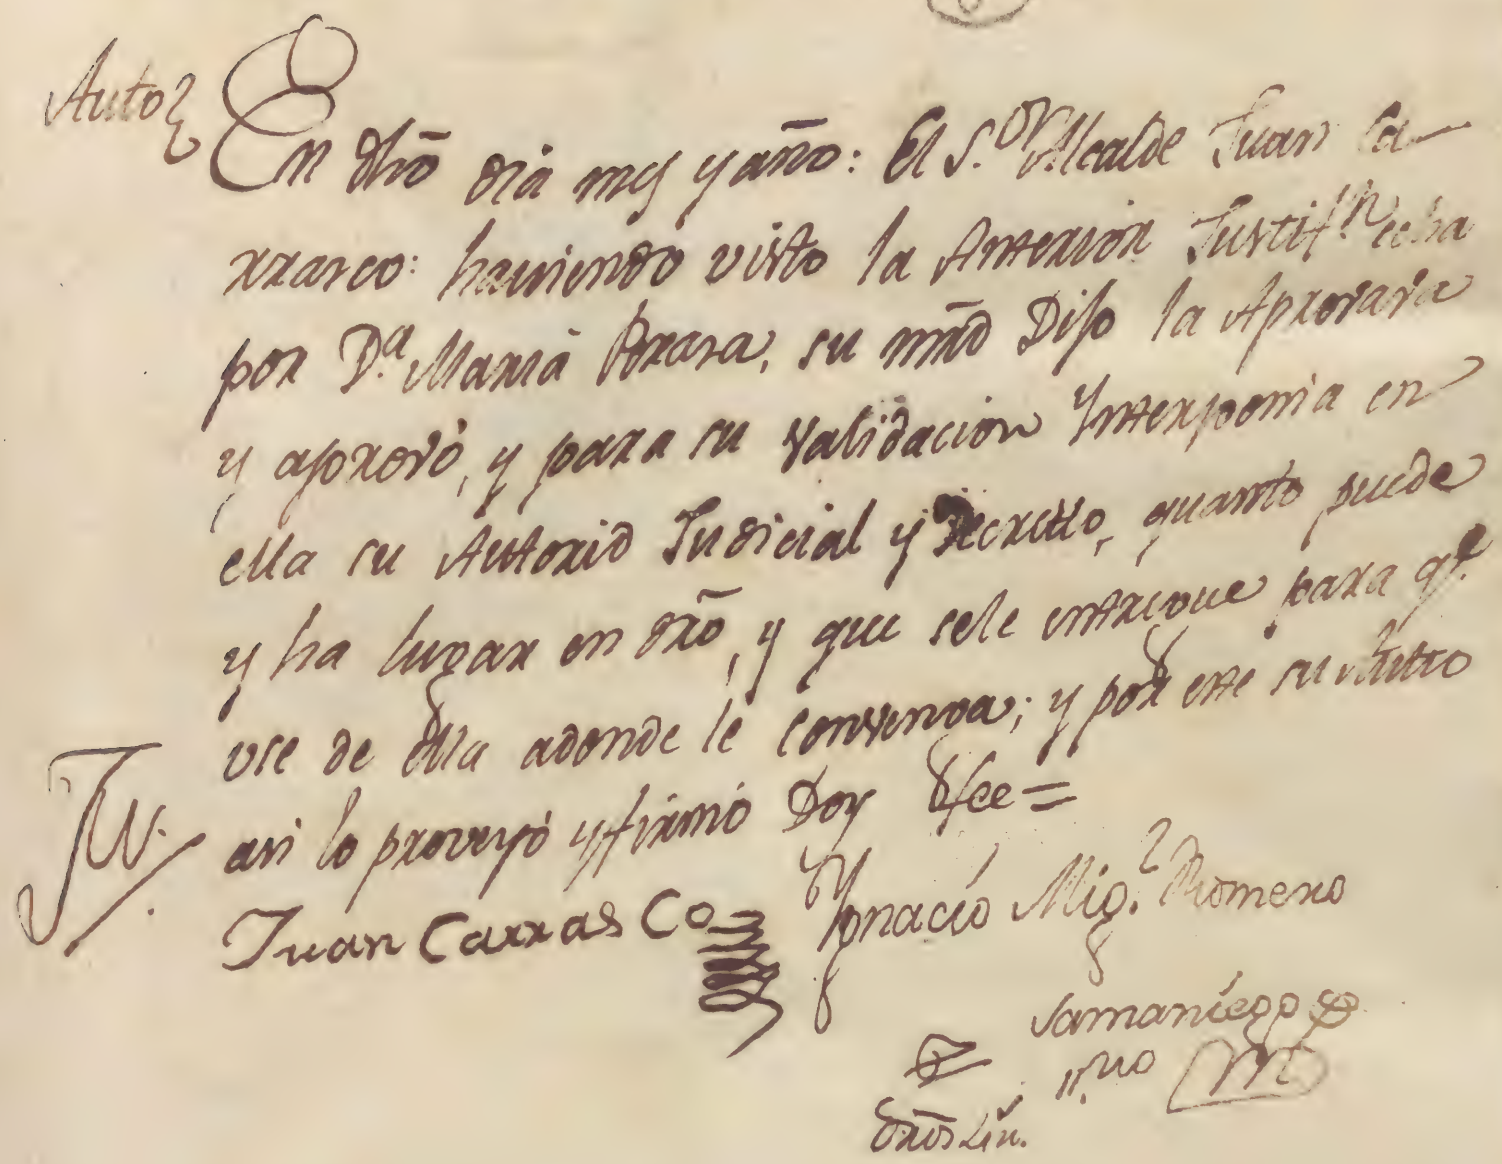 Auto
En dho dia mes y año: El S.or Alcalde Juan Ca-
rrasco: haviendo visto la Anterior Justif.n echa
por D.a Maria su mrd Dijo la Aprovava
y aprovó, y para su validacion Ynterponia en
ella su Autorid Judicial y Decretto, quanto puede
y ha lugar en dro, y que sele entregue para q.e
use de ella adonde le convenga; y por este su Auto
asi lo proveyó y firmó Doy fee=
Juan CarrasCo Ygnacio Mig.l Romero
Samaniego